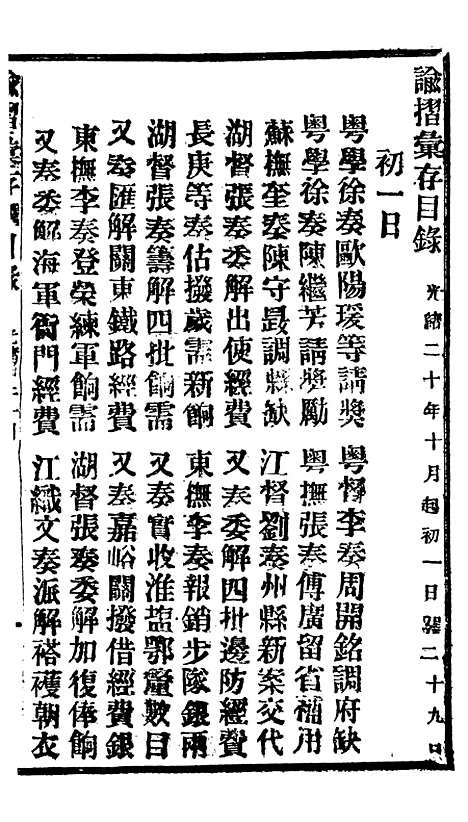 諭摺彙存目錄 光緒二十年十月起初一日至二十九日
初一日
粵學徐奏歐陽瑗等請獎 粵督李奏周開銘調府缺
粵學徐奏陳繼芳請獎勵 粵撫張奏傅廣留省補用
蘇撫奎奏陳守晸調縣缺 江督劉奏州縣新案交代
湖督張奏委解出使經費 又奏委解四批邊防經費
長庚等奏估撥歲需新餉 東撫李奏報銷步隊銀兩
湖督張奏籌解四批餉需 又奏實收淮鹽鄂釐數目
又奏匯解關東鐵路經費 又奏嘉峪關撥借經費銀
東撫李奏登榮練軍餉需 湖督張奏委解加復俸餉
又奏委解海軍衙門經費 江織文奏派解褡襪朝衣
諭摺彙存 目錄